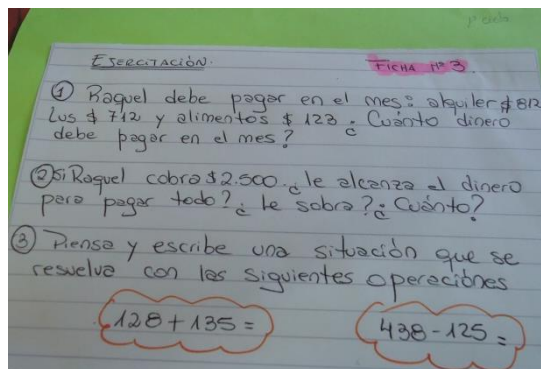 Ejercitación.
Ficha Nº 3.
① Raquel debe pagar en el mes: alquiler $ 812
Lus $ 712 y alimentos $ 123 ¿Cuánto dinero
debe pagar en el mes?
② Si Raquel cobra $ 2.500. ¿le alcanza el dinero
para pagar todo? ¿Le sobra? ¿Cuánto?
③ Piensa y escribe una situación que se
resuelva con las siguientes operaciónes
128 + 135 =
438 - 125 =